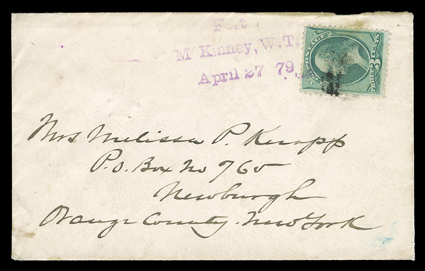 Fort
McKinney, W.T.
April 27 79
Mrs Melissa P. Knapp
P.O. Box No 765
Newburgh
Orange County New York